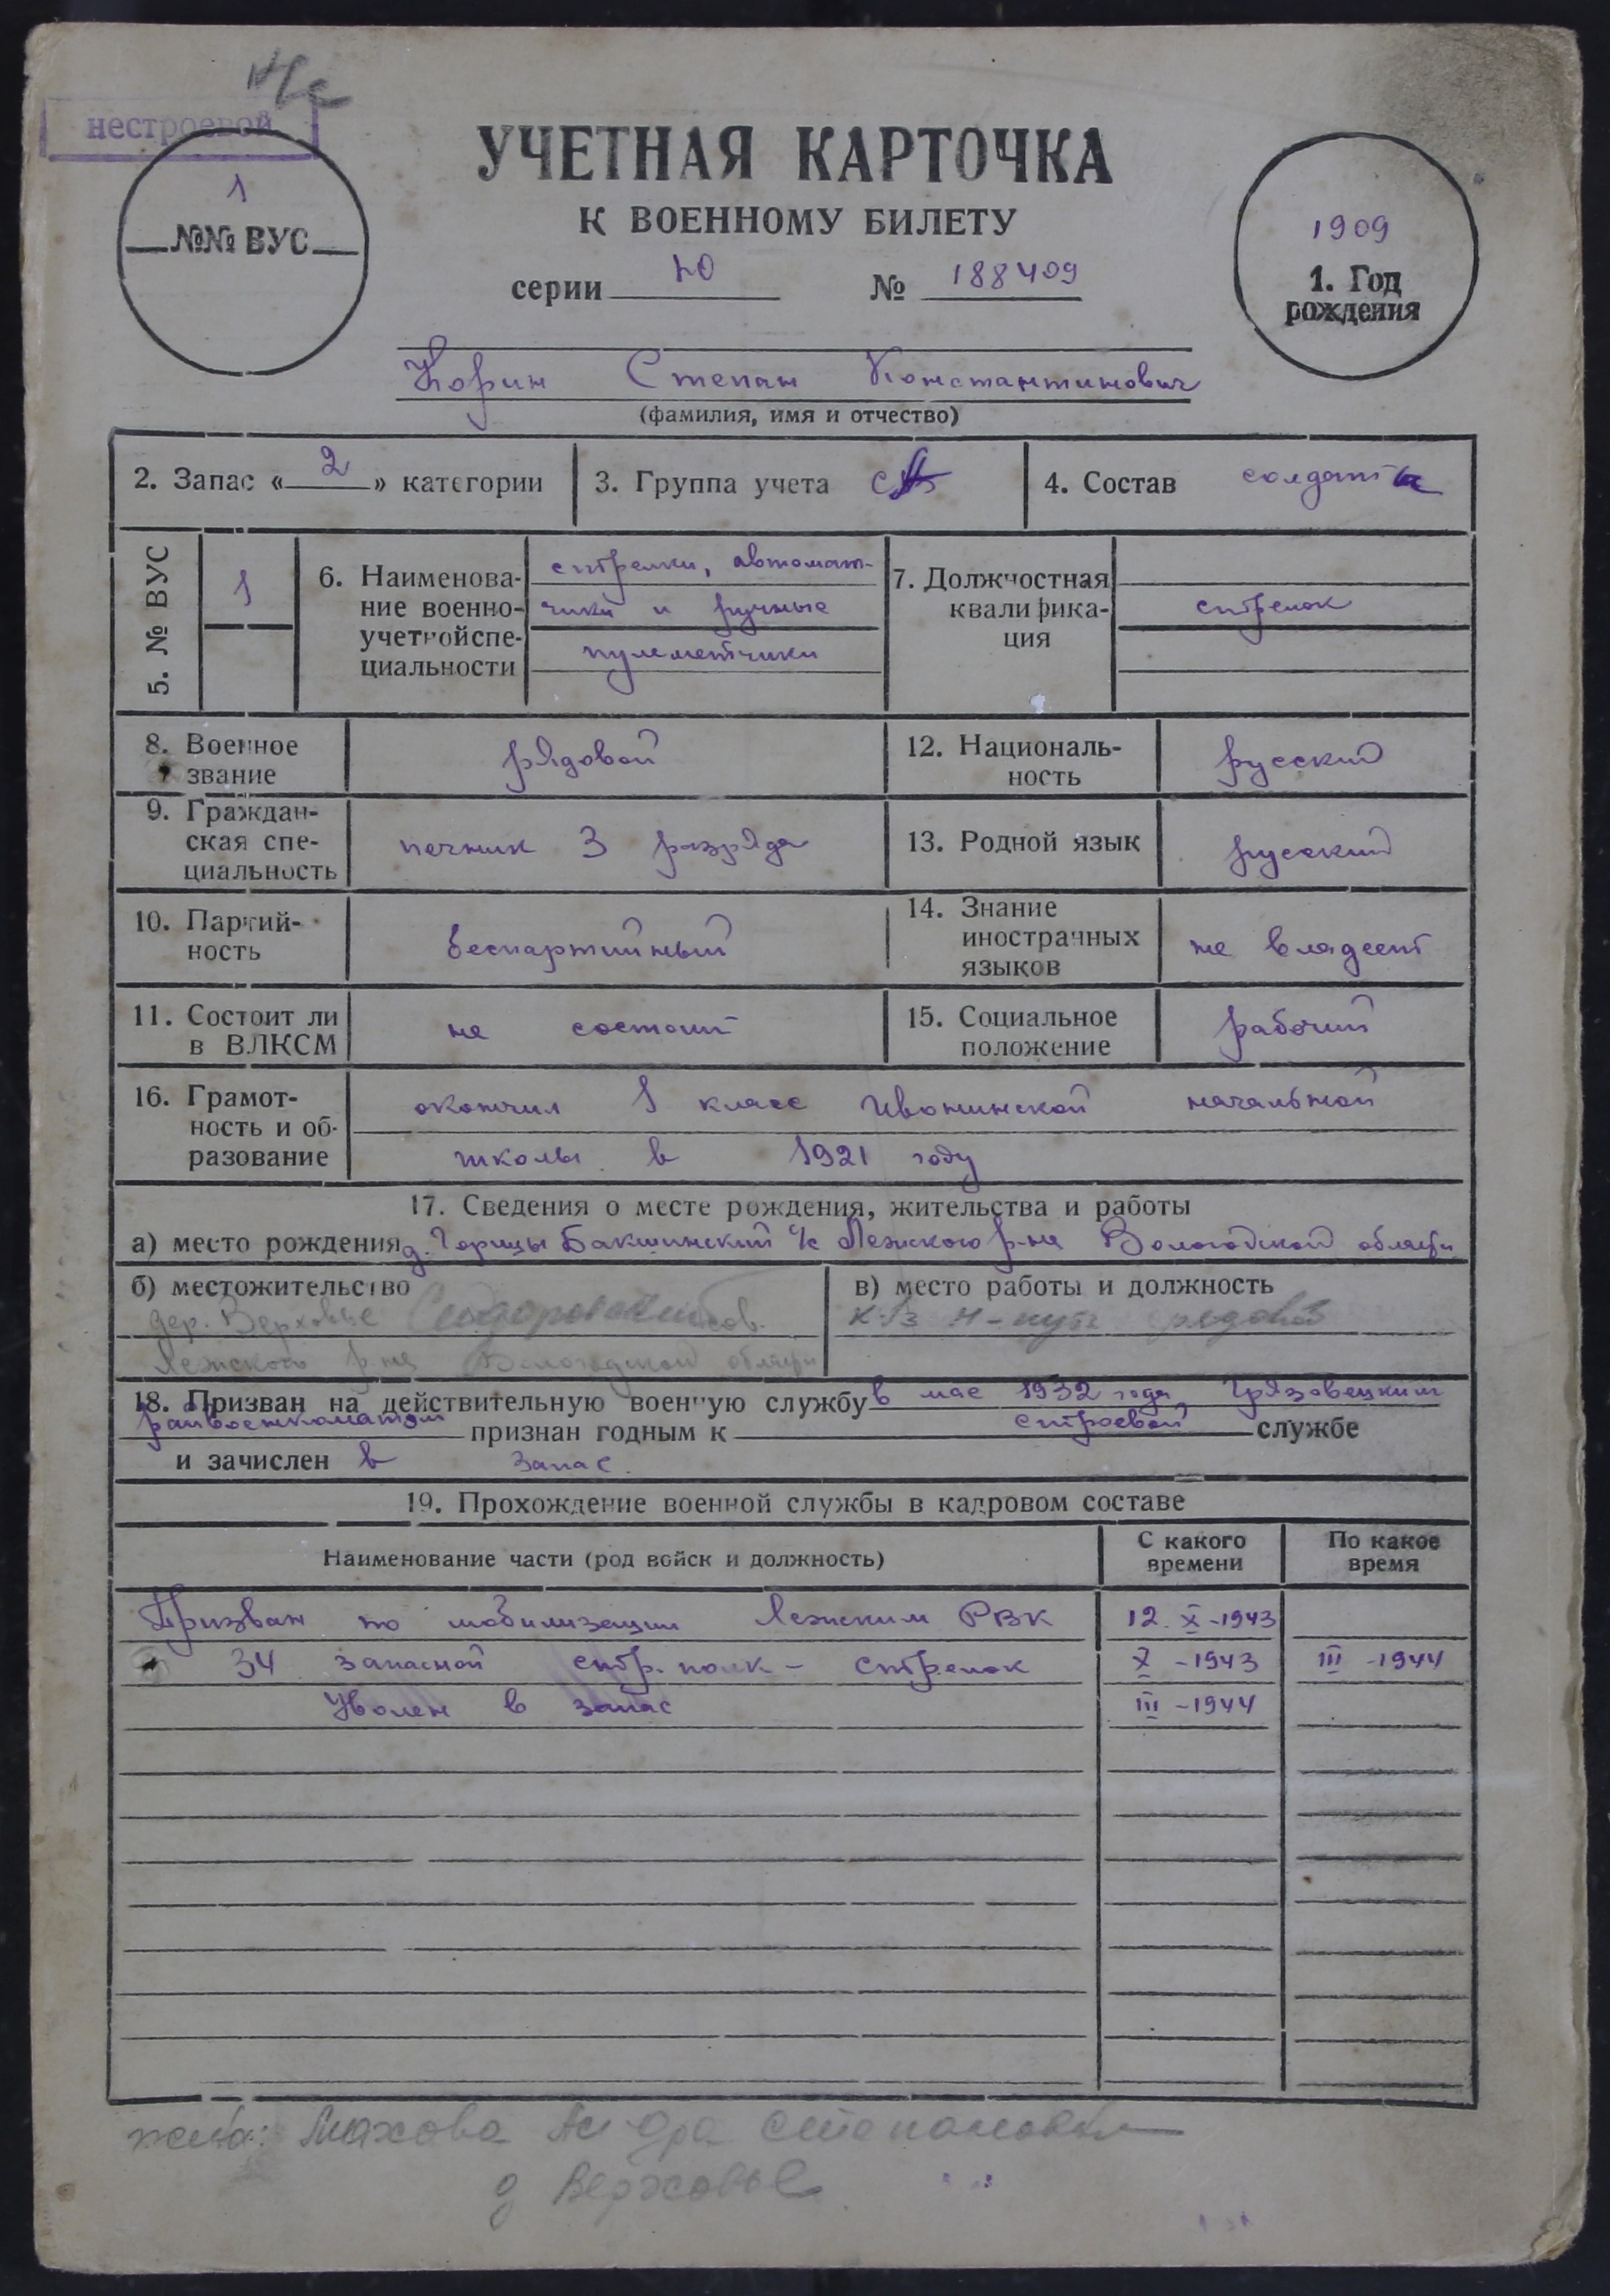 нестроевой
1
№№ ВУС
УЧЕТНАЯ КАРТОЧКА
К ВОЕННОМУ БИЛЕТУ
серии НО № 188409
1909
1. Год
рождения
Корин Степан Константинович
(фамилия, имя и отчество)
2. Запас « 2 » категории
3. Группа учета
4. Состав солдаты
5. № ВУС
1
6. Наименова-
ние военно-
учетной спе-
циальности
стрелки, автомат-
чики и ручные
пулеметчики
7. Должностная
квалифика-
ция
стрелок
8. Военное
звание
рядовой
12. Националь-
ность
русский
9. Граждан-
ская спе-
циальность
печник 3 разряда
13. Родной язык
русский
10. Партий-
ность
беспартийный
14. Знание
иностранных
языков
не владеет
11. Состоит ли
в ВЛКСМ
не состоит
15. Социальное
положение
рабочий
16. Грамот-
ность и об-
разование
окончил 1 класс Ивонинской начальной
школы в 1921 году
17. Сведения о месте рождения, жительства и работы
а) место рождения д. Горицы Бакшинский с/с Лежского р-на Вологодской области
б) местожительство
дер. Верховье Сидоровский сов.
Лежского р-на Вологодской области
в) место работы и должность
к-з рядовой
18. Призван на действительную военную службу в мае 1932 года Грязовецким
райвоенкоматом признан годным к строевой службе
и зачислен в запас.
19. Прохождение военной службы в кадровом составе
Наименование части (род войск и должность)
С какого
времени
По какое
время
Призван по мобилизации Лежским РВК 12. X -1943
34 запасной стр. полк - стрелок X -1943 III -1944
Уволен в запас III -1944
жена: Махова Степановна
д Верховье